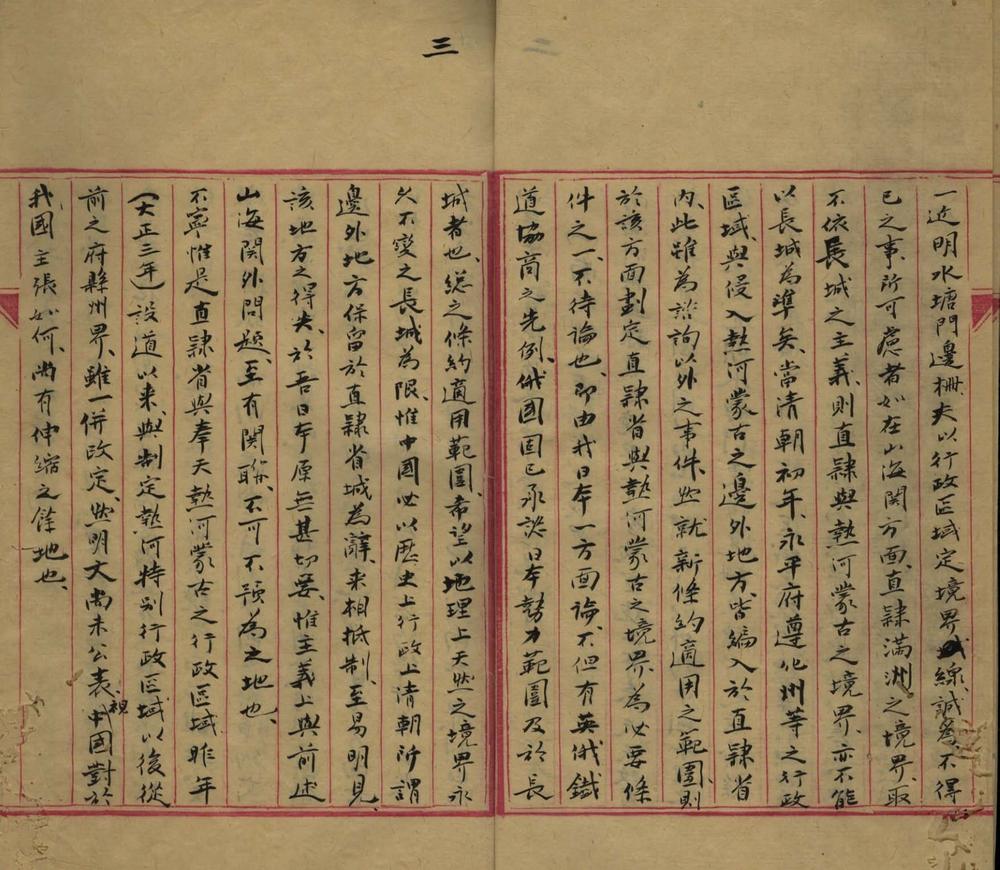 二
一近明水塘門邊柵、夫以行政区域定境界線、誠為不得
已之事、所可慮者、如在山海関方面、直隸満洲之境界、取
不依長城之主義、則直隸與熱河蒙古之境界、亦不能
以長城為準矣、當清朝初年、永平府遵化州等之行政
區域、與侵入熱河蒙古之邊外地方、皆編入於直隸省
内、此雖為諮詢以外之事件、然就新條約適用之範圍、則
於該方面劃定直隸省與熱河蒙古之境界、為必要條
件之一、不待論也、即由我日本一方面論、不但有英俄鐵
道協商之先例、俄國固已承認日本勢力範圍及於長
三
城者也、総之條約適用範圍、希望以地理上天然之境界永
久不変之長城為限、惟中國必以歴史上行政上清朝所謂
邊外地方保留於直隸省城為辭、来相抵制、至易明見、
該地方之得失、於吾日本原無甚切要、惟主義上與前述
山海関外問題、至有関聯、不可不預為之地也、
不寧惟是直隸省與奉天熱河蒙古之行政區域、昨年
(大正三年)設道以来、與制定熱河特別行政区域以後、從
前之府縣州界、雖一併改定、然明文尚未公表、視中國對於
我國主張如何、尚有伸縮之餘地也、